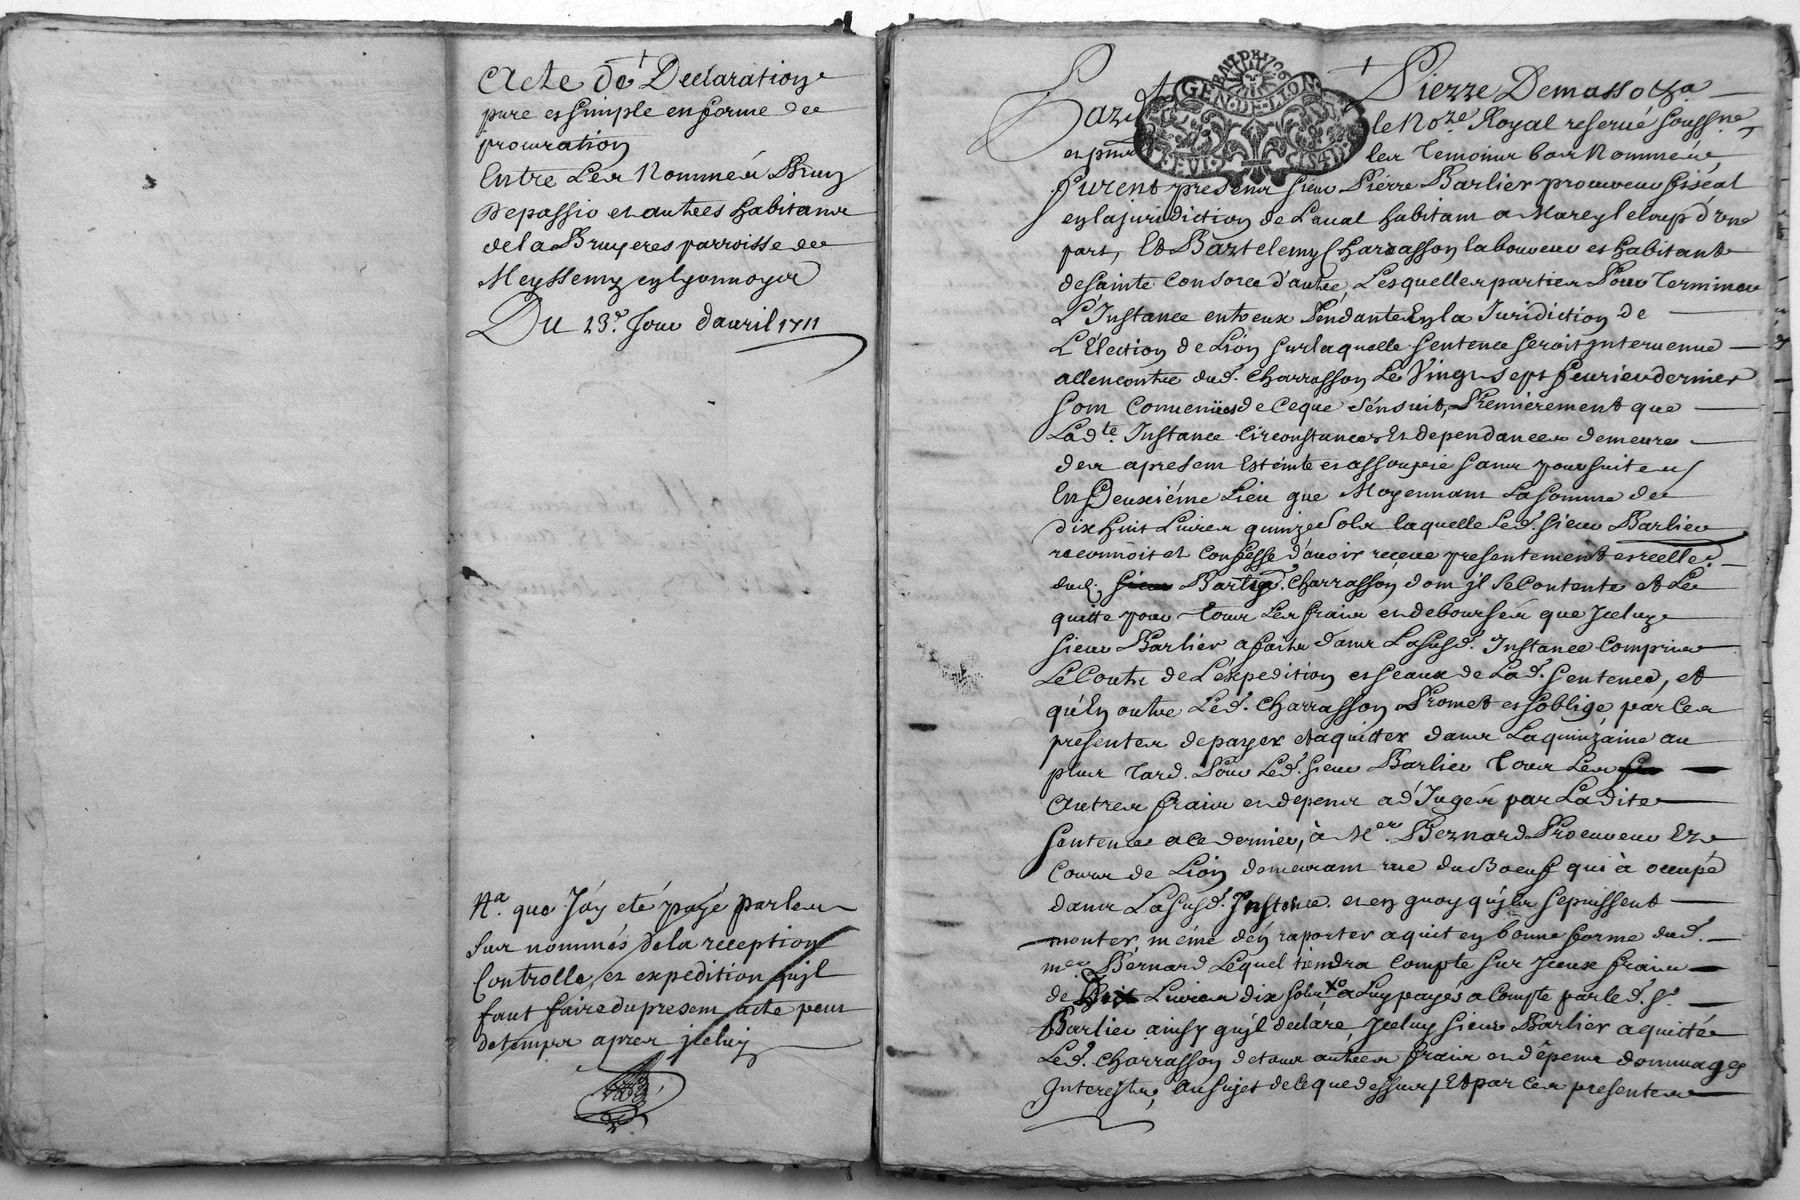 Acte de Declaration
pure et simple en forme de
procuration
Entre Les Nommés Brun
Depassio et autres habitans
de la Bruyeres parroisse de
Meyssemy en lyonnoys
Du 23e. Jour d'auril 1711
Na. que J'ay eté payé par les
sus nommés de la reception
Controlle, et expedition qu'il
faut faire du present acte peu
de temps apres jceluy
GEN·DE·LYON
Pardt. Pierre Demassotza
le Nore. Royal reserué soussné
et pnt les Temoins bas Nommés,
furent presens sieur Pierre Barlier procureur fiscal
en la juridiction de Laual habitant a Marcy le loup d'une
part, Et Bartelemy Charrasson laboureur et habitant
de sainte Consorce d'autre, Lesquelles parties Pour Terminer
L'Instance entr'eux Pendante En la Juridiction de
L'Election de Lion sur laquelle sentence seroit jnteruenue
allencontre dud. Charrasson Le Vingt sept feurier dernier
sont Conuenües de Ce que s'ensuit, Premièrement que
Lad.te Instance Circonstances Et dependances demeure
des a present Esteinte et assoupie sans poursuites
En Deuxiéme Lieu que Moyennant La somme de
dix huit Liures quinze Sols laquelle Led. sieur Barlier
reconnoit et Confesse d'auoir receue presentement et reelle.
dud. sieur Bartel. Charrasson dont jl se Contente et Le
quitte pour tous Les frais et debourses que Jceluy
sieur Barlier a faits dans La susd. Instance Compris
Le Coutz de L'expedition et seaux de Lad. sentence, et
qu'En outre Led. Charrasson Promet et s'oblige par Ces
présentes de payer et aquitter dans La quinzaine au
plus Tard. Pour Led. sieur Barlier Tous Les fr
Autres frais et depens ad'Jugés par La dite
sentence a Ce dernier, à Mer. Bernard Procureur Ez
Cours de Lion demeurant rue du Boeuf qui à occupé
dans La susd. Instance et en quoy qu'jls se puissent
monter même d'en raporter aquit en bonne forme dud.
mer. Bernard Lequel tiendra Compte sur Jceux frais
de Huit Liures dix sols a Luy payés a Compte par le d. Sr.
Barlier ainsy qu'jl declare Jceluy sieur Barlier aquitté
Led. Charrasson de tous autres frais et dépens dommages
Interests, au sujet de Ce que dessus, Et par Ces presentes